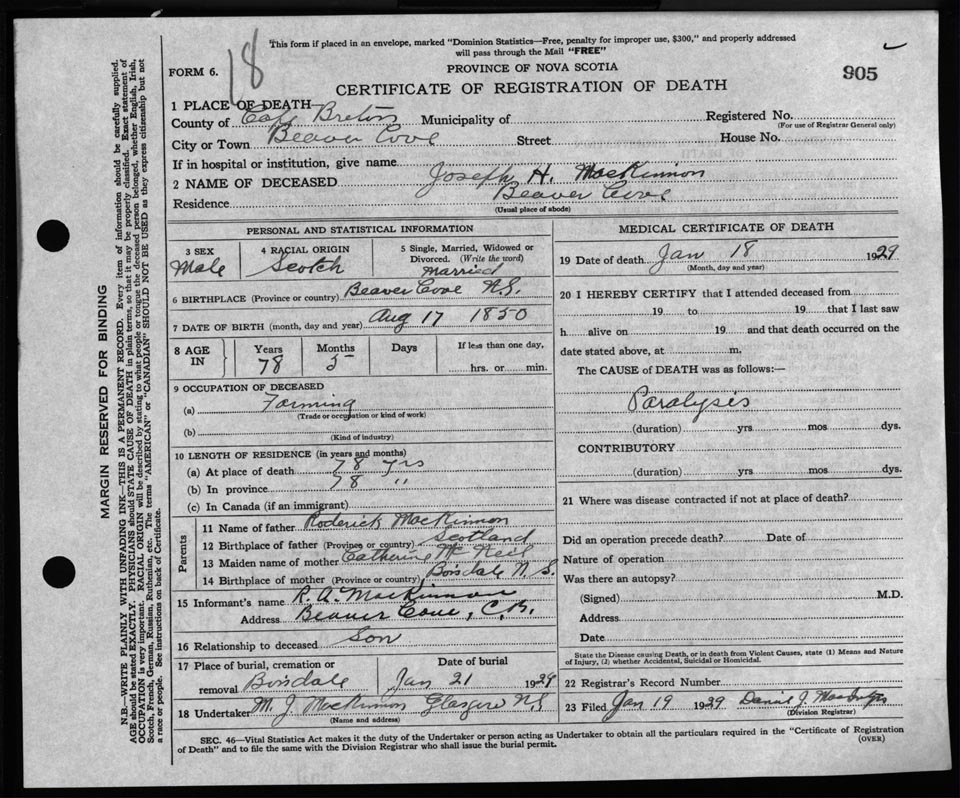 18
This form if placed in an envelope, marked "Dominion Statistics—Free, penalty for improper use, $300," and properly addressed
will pass through the Mail "FREE"
FORM 6.
PROVINCE OF NOVA SCOTIA
905
CERTIFICATE OF REGISTRATION OF DEATH
1 PLACE OF DEATH
County of Cape Breton Municipality of Registered No.
(For use of Registrar General only)
City or Town Beaver Cove Street House No.
If in hospital or institution, give name
2 NAME OF DECEASED Joseph H. MacKinnon
Residence Beaver Cove
(Usual place of abode)
PERSONAL AND STATISTICAL INFORMATION
3 SEX
Male
4 RACIAL ORIGIN
Scotch
5 Single, Married, Widowed or
Divorced. (Write the word)
married
6 BIRTHPLACE (Province or country) Beaver Cove N.S.
7 DATE OF BIRTH (month, day and year) Aug 17 1850
8 AGE
IN
Years
78
Months
5
Days
If less than one day,
hrs. or min.
9 OCCUPATION OF DECEASED
(a) Farming
(Trade or occupation or kind of work)
(b)
(Kind of industry)
10 LENGTH OF RESIDENCE (in years and months)
(a) At place of death 78 yrs
(b) In province 78 "
(c) In Canada (if an immigrant)
Parents
11 Name of father Roderick MacKinnon
12 Birthplace of father (Province or country) Scotland
13 Maiden name of mother Catherine McNeil
14 Birthplace of mother (Province or country) Boisdale N.S.
15 Informant's name R. A. MacKinnon
Address Beaver Cove, C.B.
16 Relationship to deceased Son
17 Place of burial, cremation or
removal Boisdale
Date of burial
Jan 21 1929
18 Undertaker M. J. MacKinnon N.S
(Name and address)
MEDICAL CERTIFICATE OF DEATH
19 Date of death Jan 18 1929
(Month, day and year)
20 I HEREBY CERTIFY that I attended deceased from
19 to 19 that I last saw
h alive on 19 and that death occurred on the
date stated above, at m.
The CAUSE of DEATH was as follows:—
Paralysis
(duration) yrs mos dys.
CONTRIBUTORY
(duration) yrs mos dys.
21 Where was disease contracted if not at place of death?
Did an operation precede death? Date of
Nature of operation
Was there an autopsy?
(Signed) M.D.
Address
Date
State the Disease causing Death, or in death from Violent Causes, state (1) Means and Nature
of Injury, (2) whether Accidental, Suicidal or Homicidal.
22 Registrar's Record Number
23 Filed Jan 19 1929 Daniel J.
(Division Registrar)
SEC. 46—Vital Statistics Act makes it the duty of the Undertaker or person acting as Undertaker to obtain all the particulars required in the "Certificate of Registration
of Death" and to file the same with the Division Registrar who shall issue the burial permit.
(OVER)
MARGIN RESERVED FOR BINDING
N.B.—WRITE PLAINLY WITH UNFADING INK—THIS IS A PERMANENT RECORD. Every item of information should be carefully supplied.
AGE should be stated EXACTLY. PHYSICIANS should STATE CAUSE OF DEATH in plain terms, so that it may be properly classified. Exact statement of
OCCUPATION is very important. RACIAL ORIGIN will be described by stating to what people or tongue the deceased person belonged, whether English, Irish,
Scotch, French, German, Russian, Ruthenian, etc. The terms "AMERICAN" or "CANADIAN" SHOULD NOT BE USED as they express citizenship but not
a race or people. See instructions on back of Certificate.